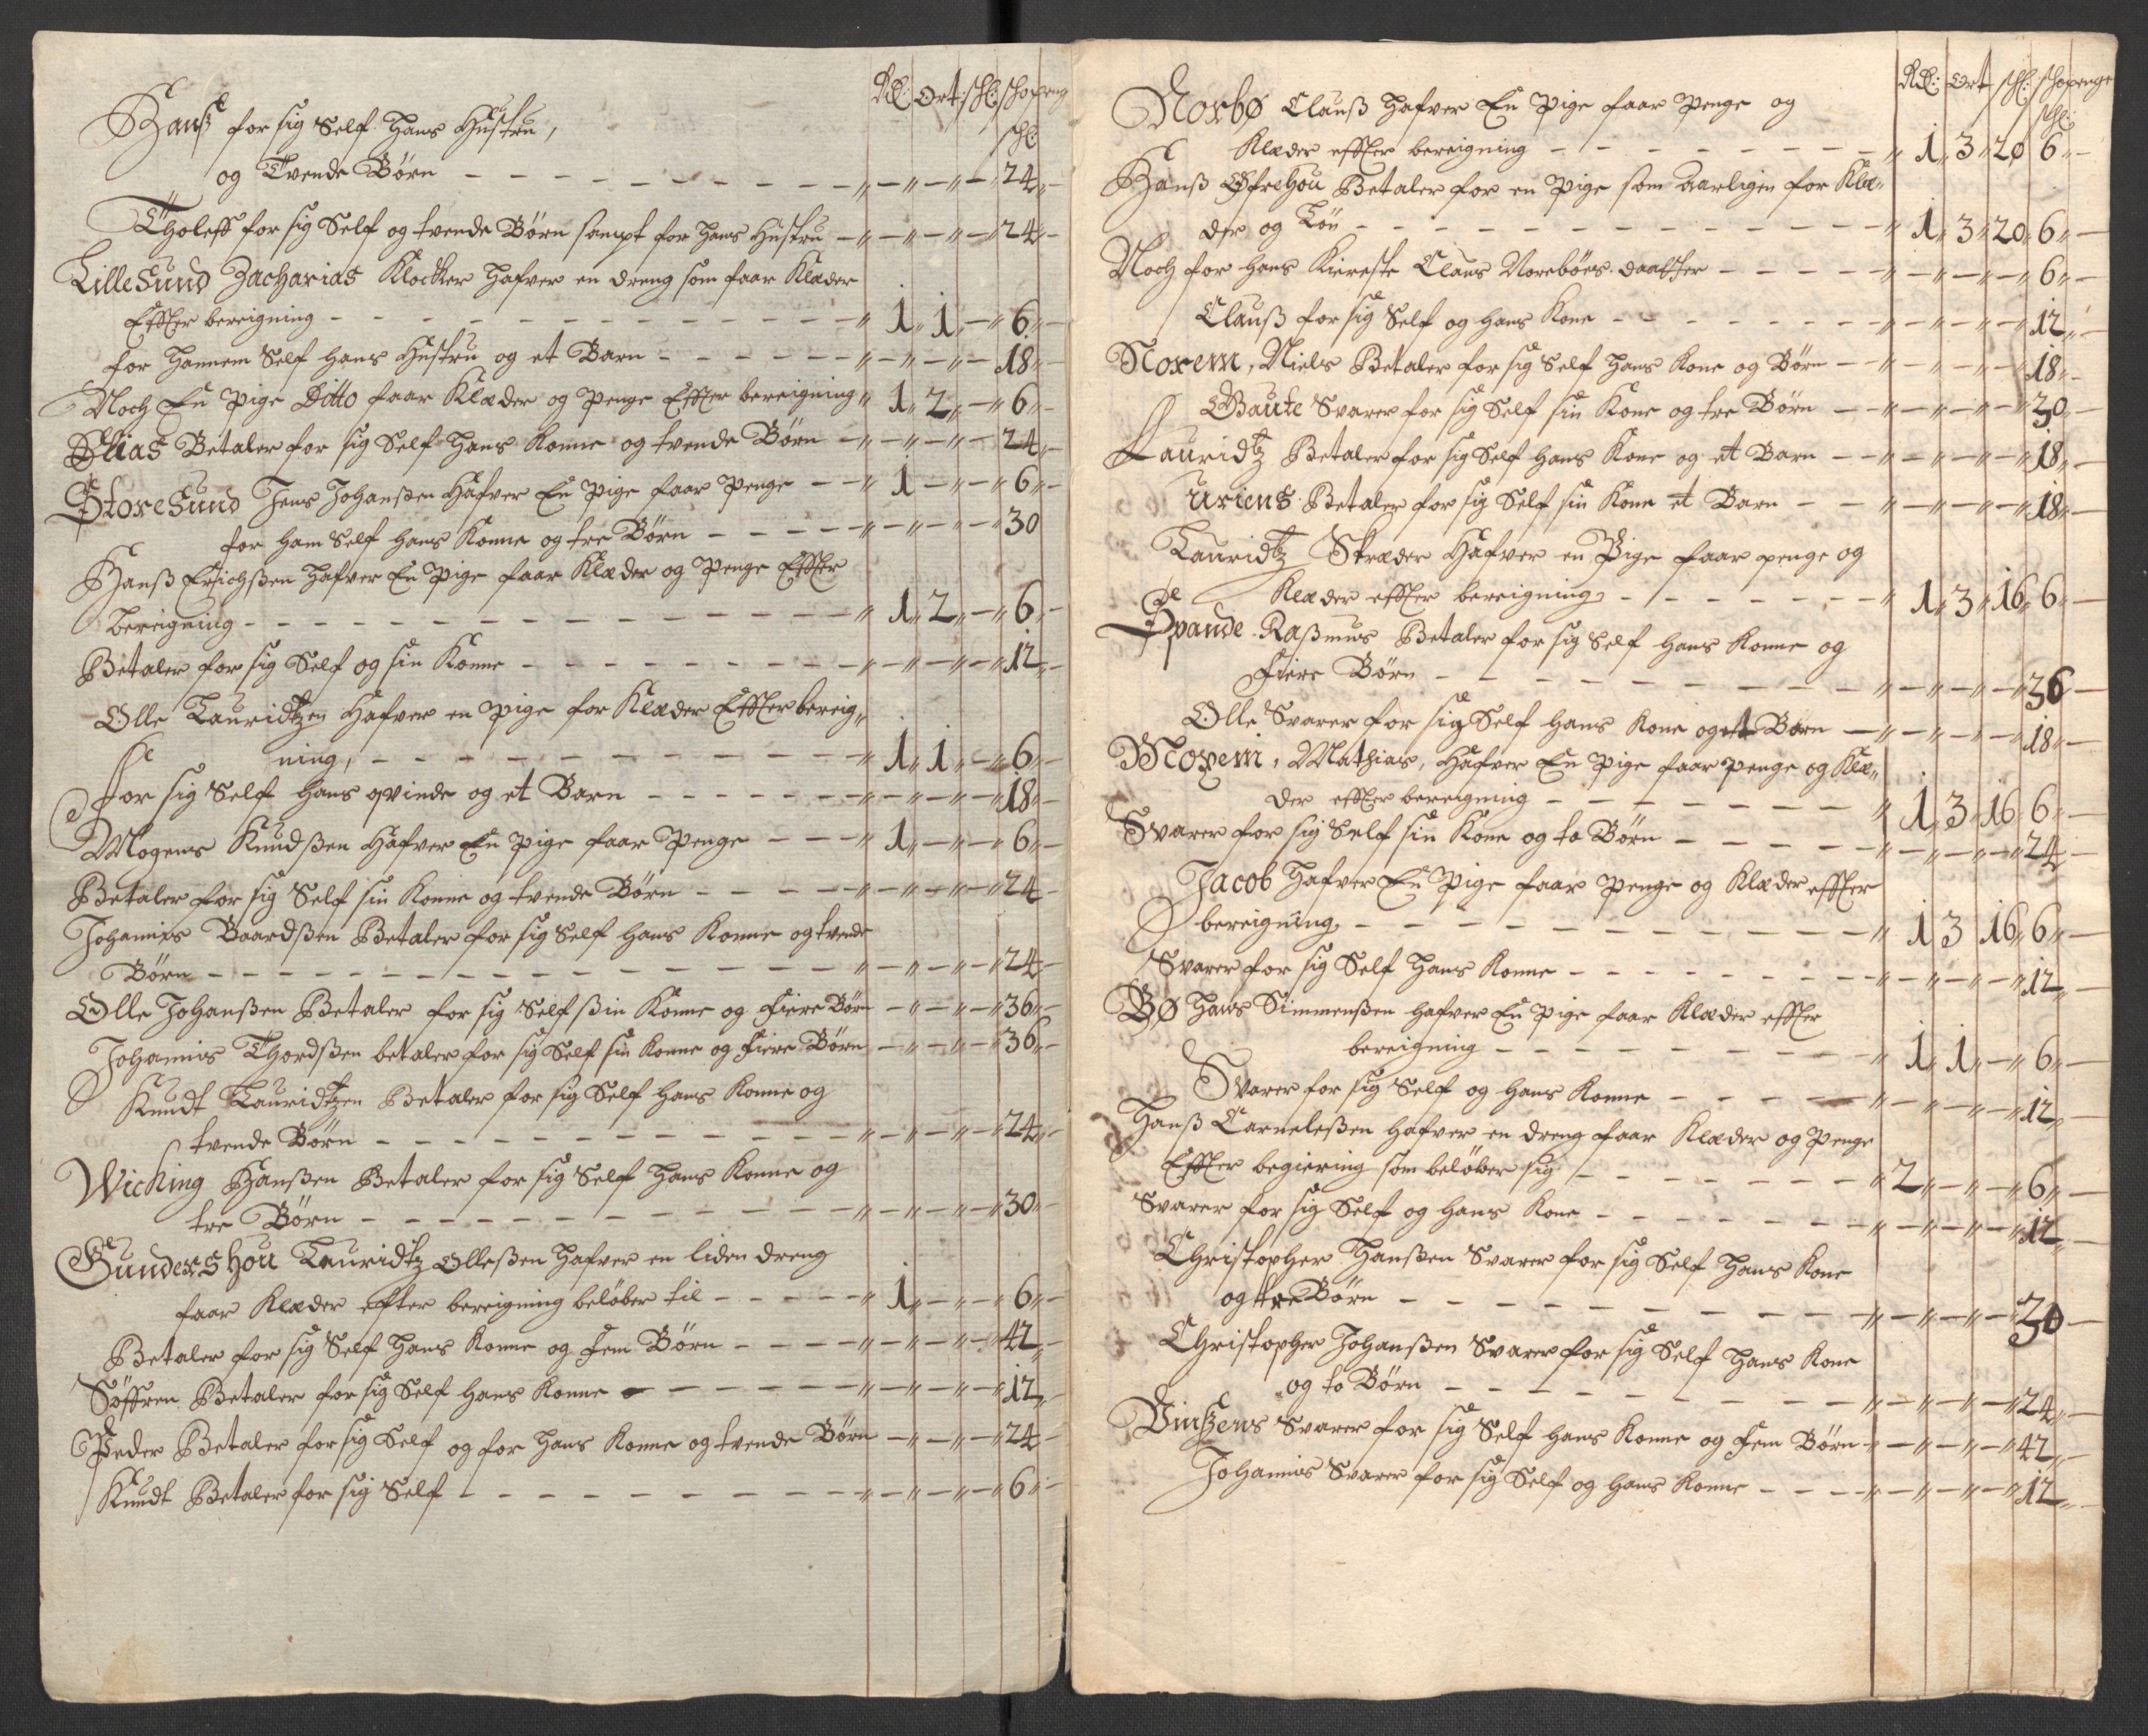 Rdl: Ort: schl: schopeng
schl:
Hanß for sig Self Hans Hustru,
og Tvende Børn - - - „ — „ — „ — „ 24 „ —
Tholeff for sig Self og tvende Børn sampt for hans Hustru — „ — „ — „ — „ 24 „ —
LilleSund Zacharias Klocker hafver en dreng som faar Klæder
Effter bereigning - - - „ 1 „ 1 „ — „ 6 „ —
for hannem Self hans Hustru og et Barn - - - „ — „ — „ — 18 „ —
Noch En Pige Ditto faar Klæder og penge Effter bereigning „ 1 „ 2 „ — „ 6 „ —
Elias Betaler for sig Self hans Konne og tvende Børn — „ — „ — „ — 24 „ —
StoreSund Jens Johanßen hafver En Pige faar penge — — „ 1 — „ — „ 6 „ —
for ham Self hans Konne og tre Børn - - - „ — „ — „ — „ 30
Hanß Erichßen hafver En Pige faar Klæder og Penge Effter
bereigning - - - „ 1 „ 2 „ — „ 6 „ —
Betaler for sig Self og sin Konne - - - „ — „ — „ — „ 12 „ —
Olle Lauridtzen hafver en Pige for Klæder Effter bereig„
ning, - - - „ 1 „ 1 „ — „ 6 „ —
for sig Self hans qvinde og et Barn - - - „ — „ — „ — „ 18 „ —
Mogens Knudßen hafver En Pige faar Penge — — — „ 1 „ — „ — „ 6 „ —
Betaler for sig Self sin Konne og tvende Børn - - - „ — „ — „ — „ 24 —
Johannis Baardßen Betaler for sig Self hans Konne og tvende
Børn - - - „ — „ — „ — „ 24 „ —
Olle Johanßen Betaler for sig Self ßin Konne og Fiere Børn — „ — „ — „ 36 „ —
Johannis Thordßen betaler for sig Self sin Konne og Fiere Børn — „ — „ — „ 36 „ —
Knudt Lauridtzen Betaler for sig Self hans Konne og
tvende Børn - - - „ — „ — „ — „ 24 „ —
Wicking Hanßen Betaler for sig Self hans Konne og
tre Børn - - - „ — „ — „ — „ 30 „ —
Gunders hou Lauridtz Olleßen hafver en liden dreng
faar Klæder efter bereigning beløber til - - - „ 1 „ — „ — „ 6 „ —
Betaler for sig Self hans Konne og Fem Børn - - - „ — „ — „ — „ 42 „ —
Søffren Betaler for sig Self hans Konne - - - „ — „ — „ — „ 12 „ —
Peder Betaler for sig Self og for hans Konne og tvende Børn — „ — „ — „ 24 „ —
Knudt Betaler for sig Self - - - „ — „ — „ — „ 6 „ —
Rdl: Ort schl: schopenge
schl:
Norbø Clauß hafver En Pige faar Penge og
Klæder effter bereigning - - - „ 1 „ 3 „ 20 6 „ —
Hanß Øfrehou Betaler for en Pige som aarligen for Klæ„
der og Løn - - - „ 1 „ 3 „ 20 „ 6 „ —
Noch for hans Kiereste Claus Norebøes daatter - - - „ — „ — „ — „ 6 „ —
Clauß for sig Self og hans Kone - - - „ — „ — „ — „ 12 „ —
Norem, Niels Betaler for sig Self hans Kone og Børn — „ — „ — „ — „ 18 „ —
Gaute Svarer for sig Self sin Kone og tre Børn — „ — „ — „ — „ 30 „ —
Lauridtz Betaler for sig Self hans Kone og et Barn — — „ — „ — „ — „ 18 „ —
Uriens Betaler for sig Self sin Kone et Barn — — „ — „ — „ — „ 18 „ —
Lauridtz Skræder hafver en Pige faar penge og
Klæder effter bereigning, - - - „ 1 „ 3 „ 16 „ 6 „ —
Spande Raßmus Betaler for sig Self hans Konne og
Fiere Børn - - - „ — „ — „ — „ 36 —
Olle Svarer for sig Self hans Kone og et Børn — „ — „ — „ — „ 18 „ —
Moxem, Mathias, hafver En Pige faar penge og Klæ„
der effter bereigning - - - „ 1 „ 3 „ 16 6 „ —
Svarer for sig Self sin Kone og to Børn - - - „ — „ — „ — „ 24 —
Jacob hafver En Pige faar Penge og Klæder effter
bereigning, - - - „ 1 3 16 „ 6 „ —
Svarer for sig Self hans Konne - - - „ — „ — „ — „ 12 „ —
Bø Hans Simmenßen hafver En Pige faar Klæder effter
bereigning - - - „ 1 „ 1 „ — „ 6 „ —
Svarer for sig Self og hans Konne - - - „ — „ — „ — „ 12 „ —
Hanß Carneleßen hafver en dreng faar Klæder og Penge
Effter begiering som beløber sig - - - „ 2 „ — „ — „ 6 „ —
Svarer for sig Self og hans Kone - - - „ — „ — „ — „ 12 „ —
Christopher Hanßen Svarer for sig Self hans Kone
og tre Børn - - - „ — „ — „ — „ 30 —
Christopher Johanßen Svarer for sig Self hans Kone
og to Børn - - - „ — „ — „ — „ 24 „ —
Vintzens Svarer for sig Self hans Konne og Fem Børn „ — „ — „ — „ 42 „ —
Johannis Svarer for sig Self og hans Konne - - - „ — „ — „ — „ 12 „ —